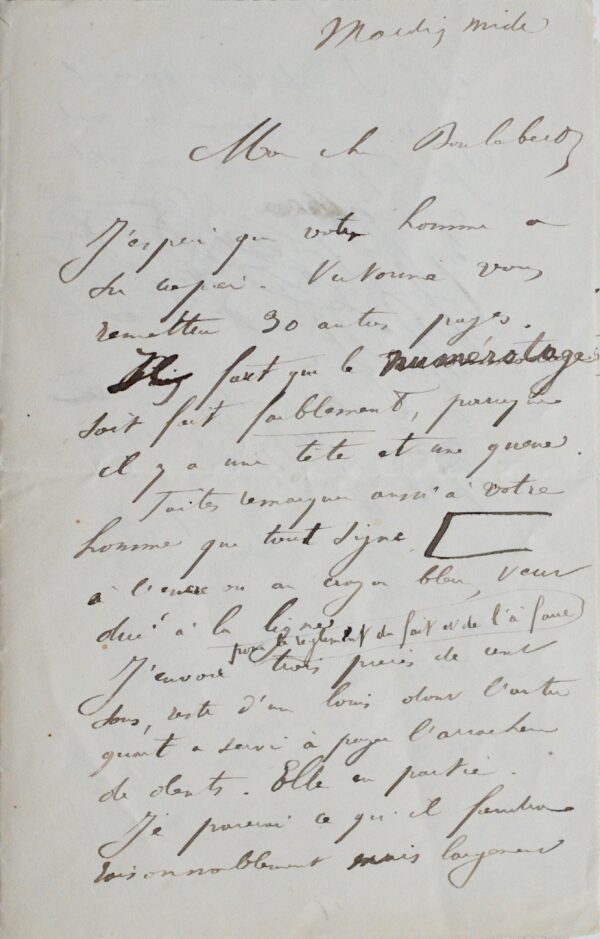 Mardi, midi
Mon ch
J'espère que votre homme a
du papier. Victorine vous
remettra 30 autres pages.
Il faut que le numérotage
soit fait faiblement, puisque
il y a une tête et une queue.
Faites remarquer aussi à votre
homme que tout signe
à l'encre ou au crayon bleu, veut
dire à la ligne
pour le règlement du fait et de l'à faire
J'envoie trois pièces de cent
sous, reste d'un louis dont l'autre
quart a servi à payer l'arracheur
de dents. Elle en partie.
Je paierai ce qu'il faudra
raisonnablement mais largement